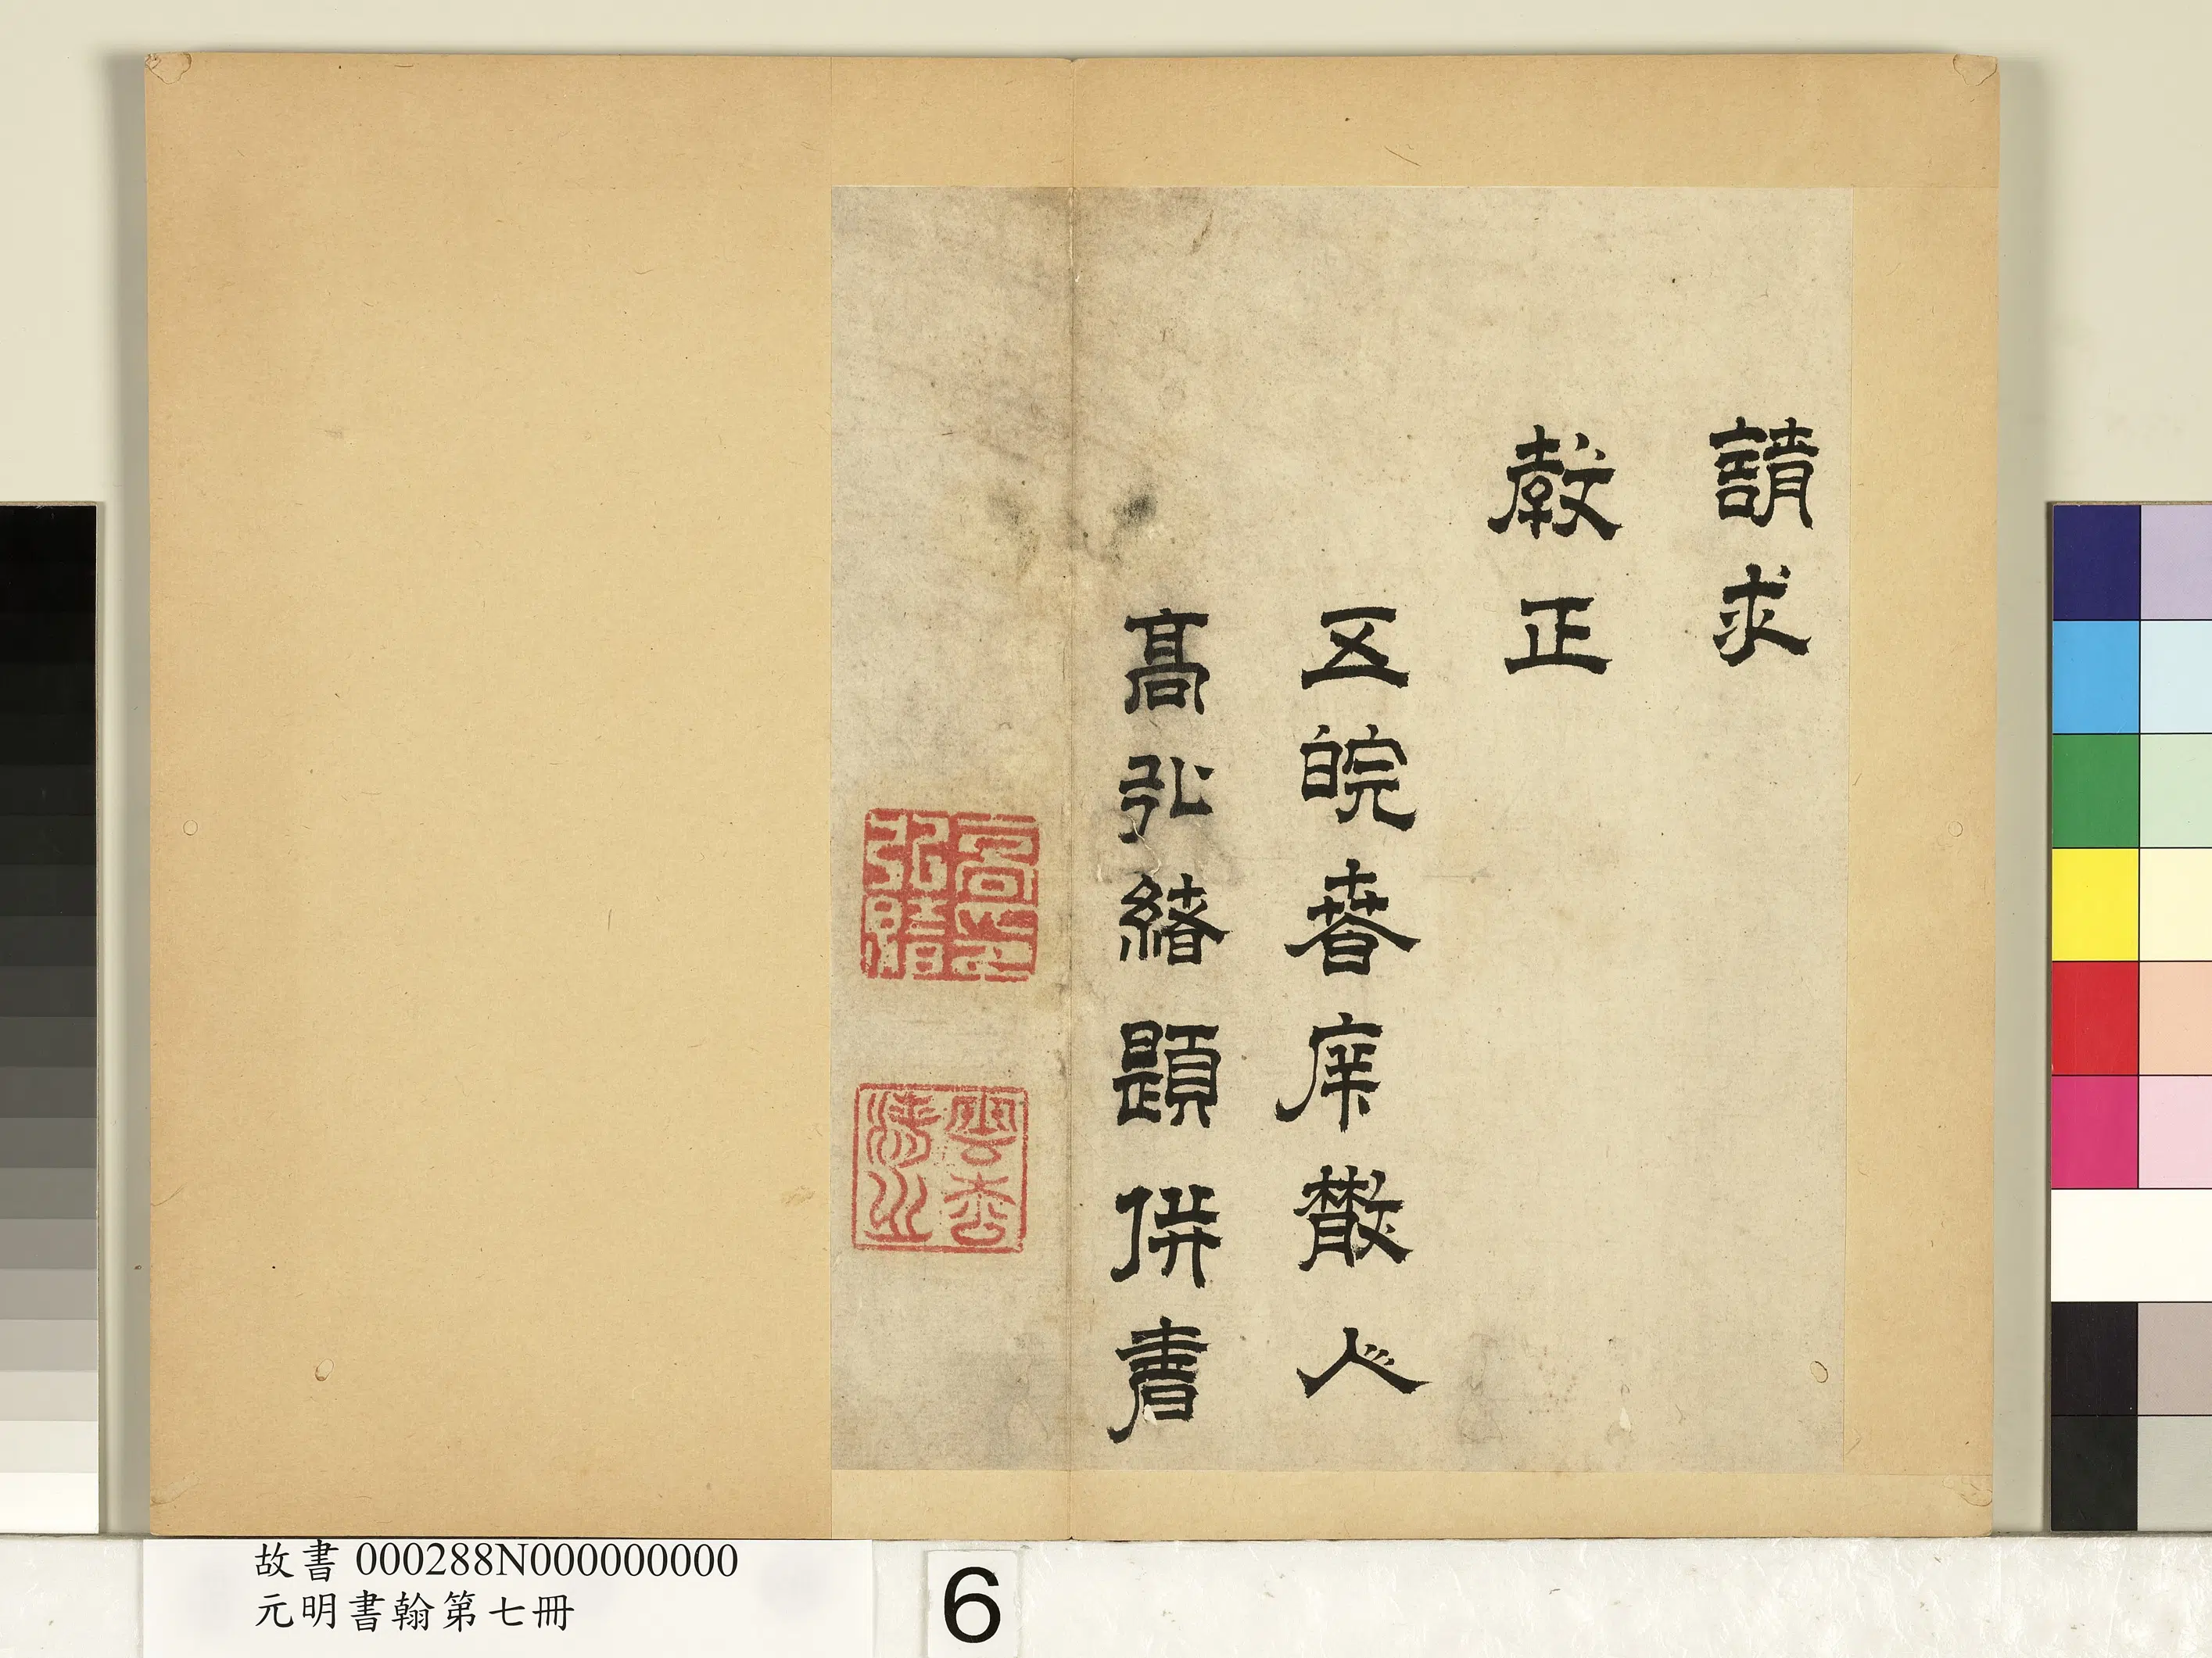 請求
教正
五皖春庠散人
高弘緒題併書
故書 000288N000000000
元明書翰第七冊
6